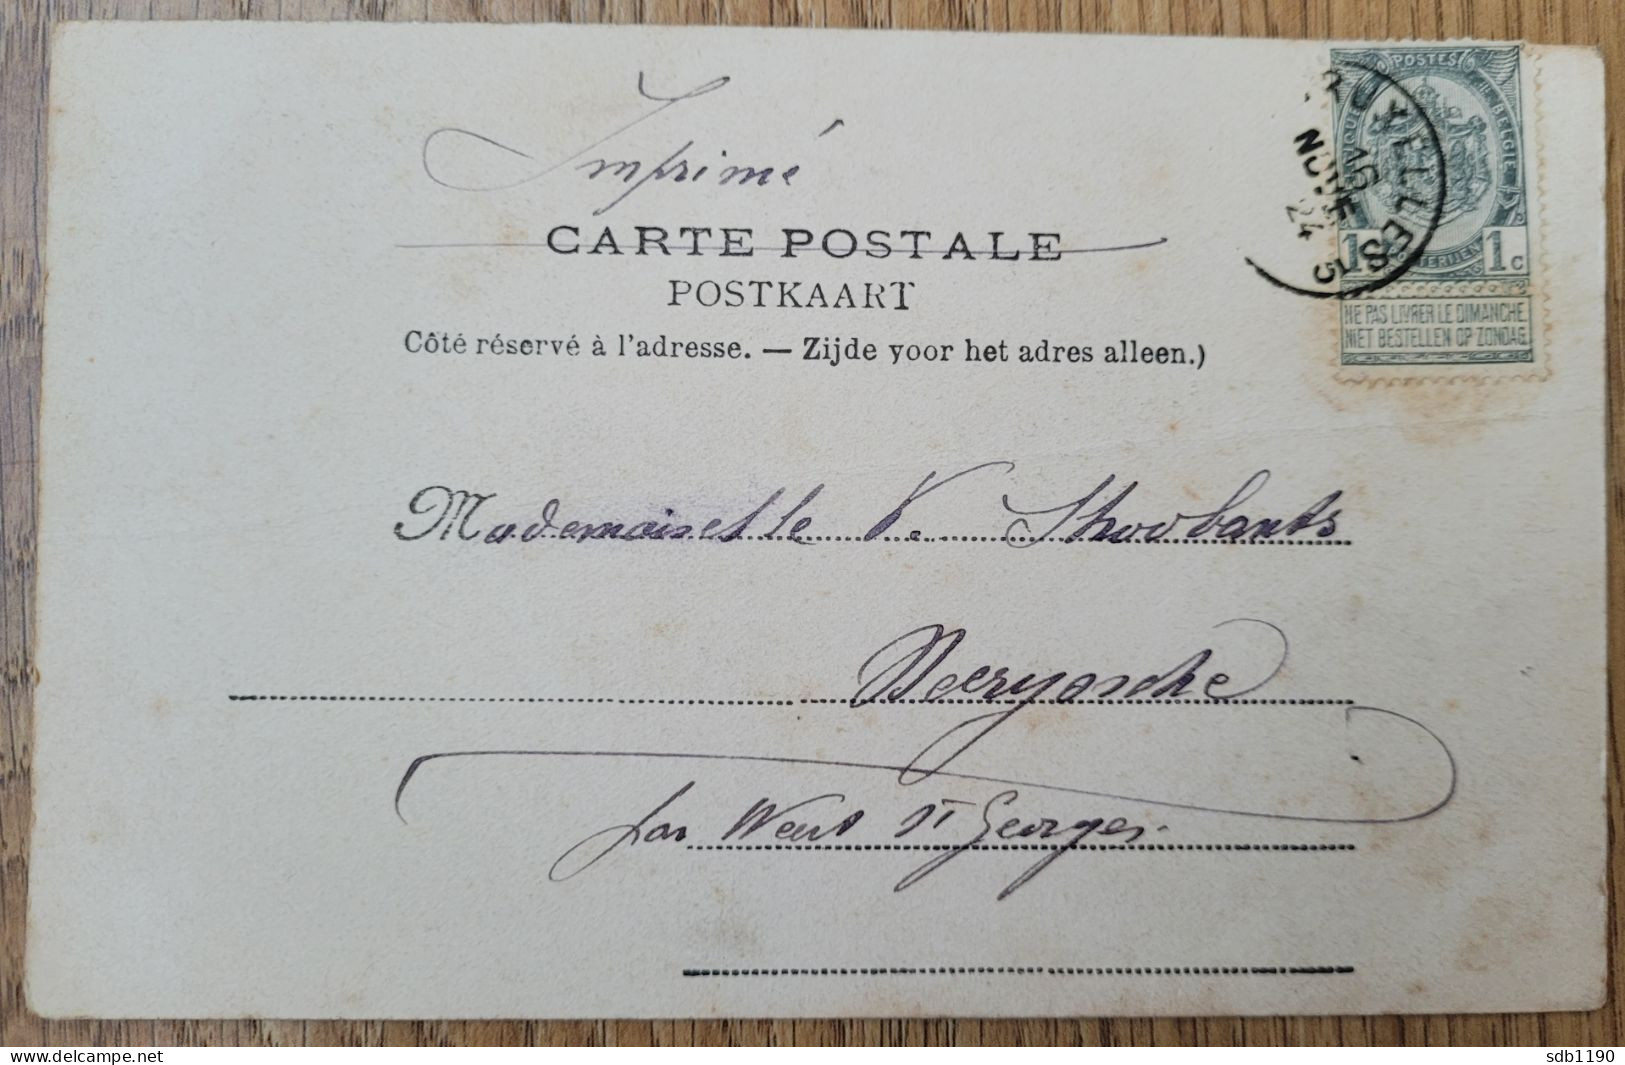 Imprimé
CARTE POSTALE
POSTKAART
Côté réservé à l'adresse. — Zijde voor het adres alleen.)
POSTES
BELGIE
1 1c
NE PAS LIVRER LE DIMANCHE
NIET BESTELLEN OP ZONDAG
XELLES 5
NOVE
24
Mademoiselle V. Stroobants
Neeryssche
par Weert St Georges.
delcampe.net
sdb1190